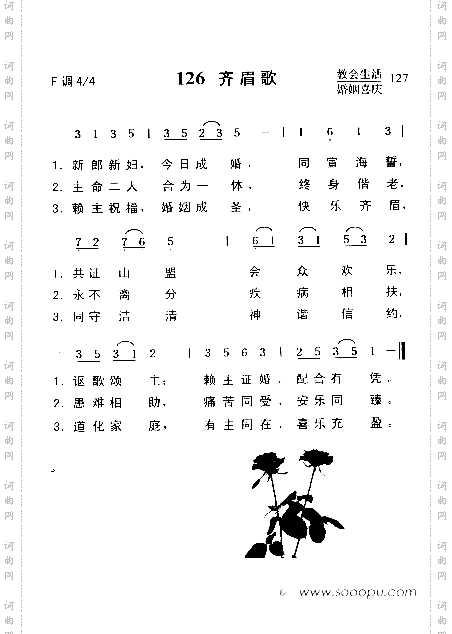 F 调 4/4
126 齐眉歌
教会生活
婚姻喜庆
127
3 1 3 5 | 1 5 3 5 2 3 5 - - | 1 6 1 3
1. 新郎新妇, 今日成婚, 同富海誓,
2. 生命二人 合为一体, 终身偕老,
3. 赖主祝福, 婚姻成圣, 快乐齐眉,
7 2 7 6 5 | 6 1 3 1 5 3 2 |
1. 共证山盟 会众欢乐,
2. 永不离分 疾病相扶,
3. 同守洁清 神谐信约,
3 5 3 1 2 | 3 5 6 3 | 2 5 3 5 1 —
1. 讴歌颂主; 赖主证婚, 配合有凭。
2. 患难相助, 痛苦同受, 安乐同臻。
3. 道化家庭, 有主同在, 喜乐充盈。
www.sooopu.com
词曲网